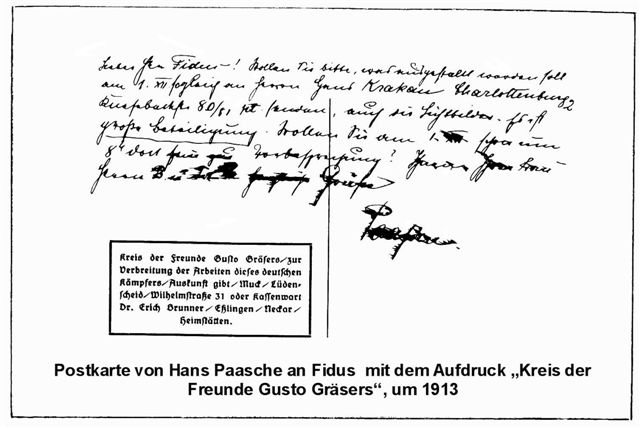 Lieber Herr Fidus-! Wollen Sie bitte, was ausgestellt werden soll
am 1. XII sogleich an Herrn Hans Krakau Charlottenburg 2
senden, auch die Lichtbilder. Es ist
große Beteiligung. Wollen Sie am 1. schon um
8h dort sein zur Vorbesprechung?
Herrn Grüße
Paasche.
Kreis der Freunde Gusto Gräsers/zur
Verbreitung der Arbeiten dieses deutschen
Kämpfers/Auskunft gibt/Muck/Lüden-
scheid/Wilhelmstraße 31 oder Kassenwart
Dr. Erich Brunner/Eßlingen/Neckar/
Heimstätten.
Postkarte von Hans Paasche an Fidus mit dem Aufdruck „Kreis der
Freunde Gusto Gräsers“, um 1913